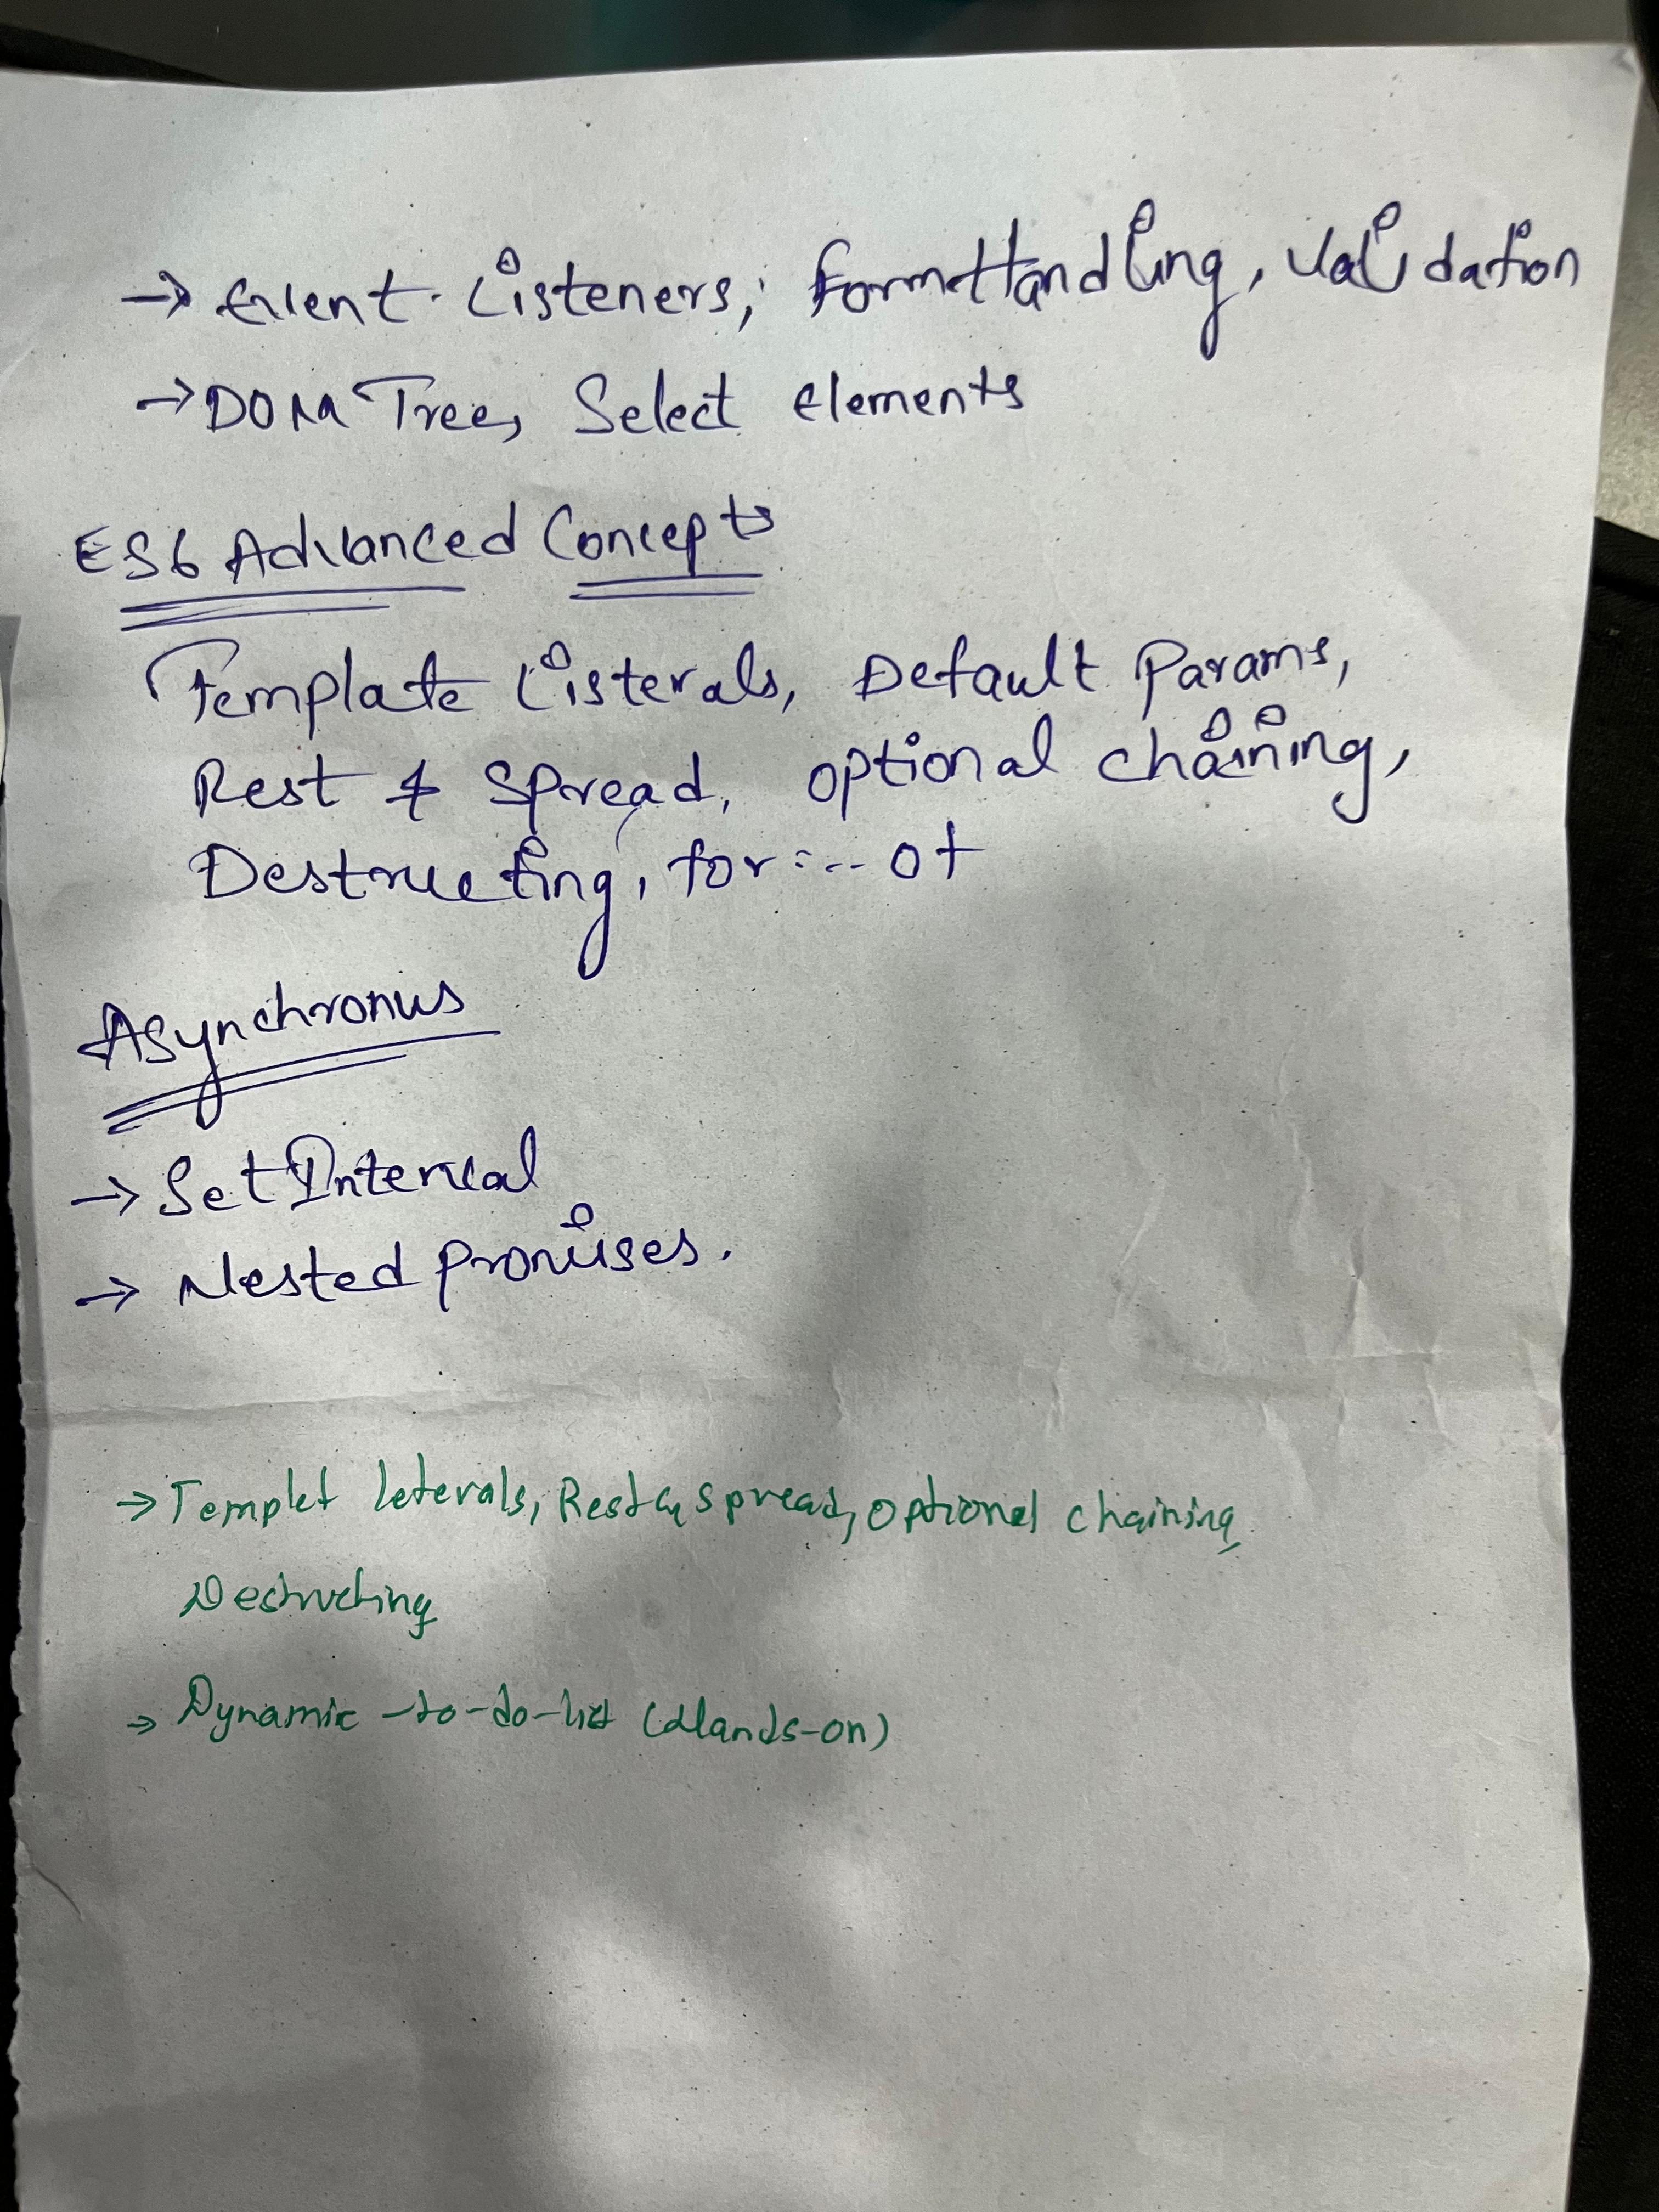 → Event Listeners, Form Handling, Validation
→ DOM Tree, Select elements
ES6 Advanced Concepts
Template Listerals, Default Params,
Rest & Spread, optional chaining,
Destructing, for ... of
Asynchronus
→ Set Interval
→ Nested promises.
→ Templet leterals, Rest & spread, optional chaining,
Destructing
→ Dynamic -to-do-list (Hands-on)